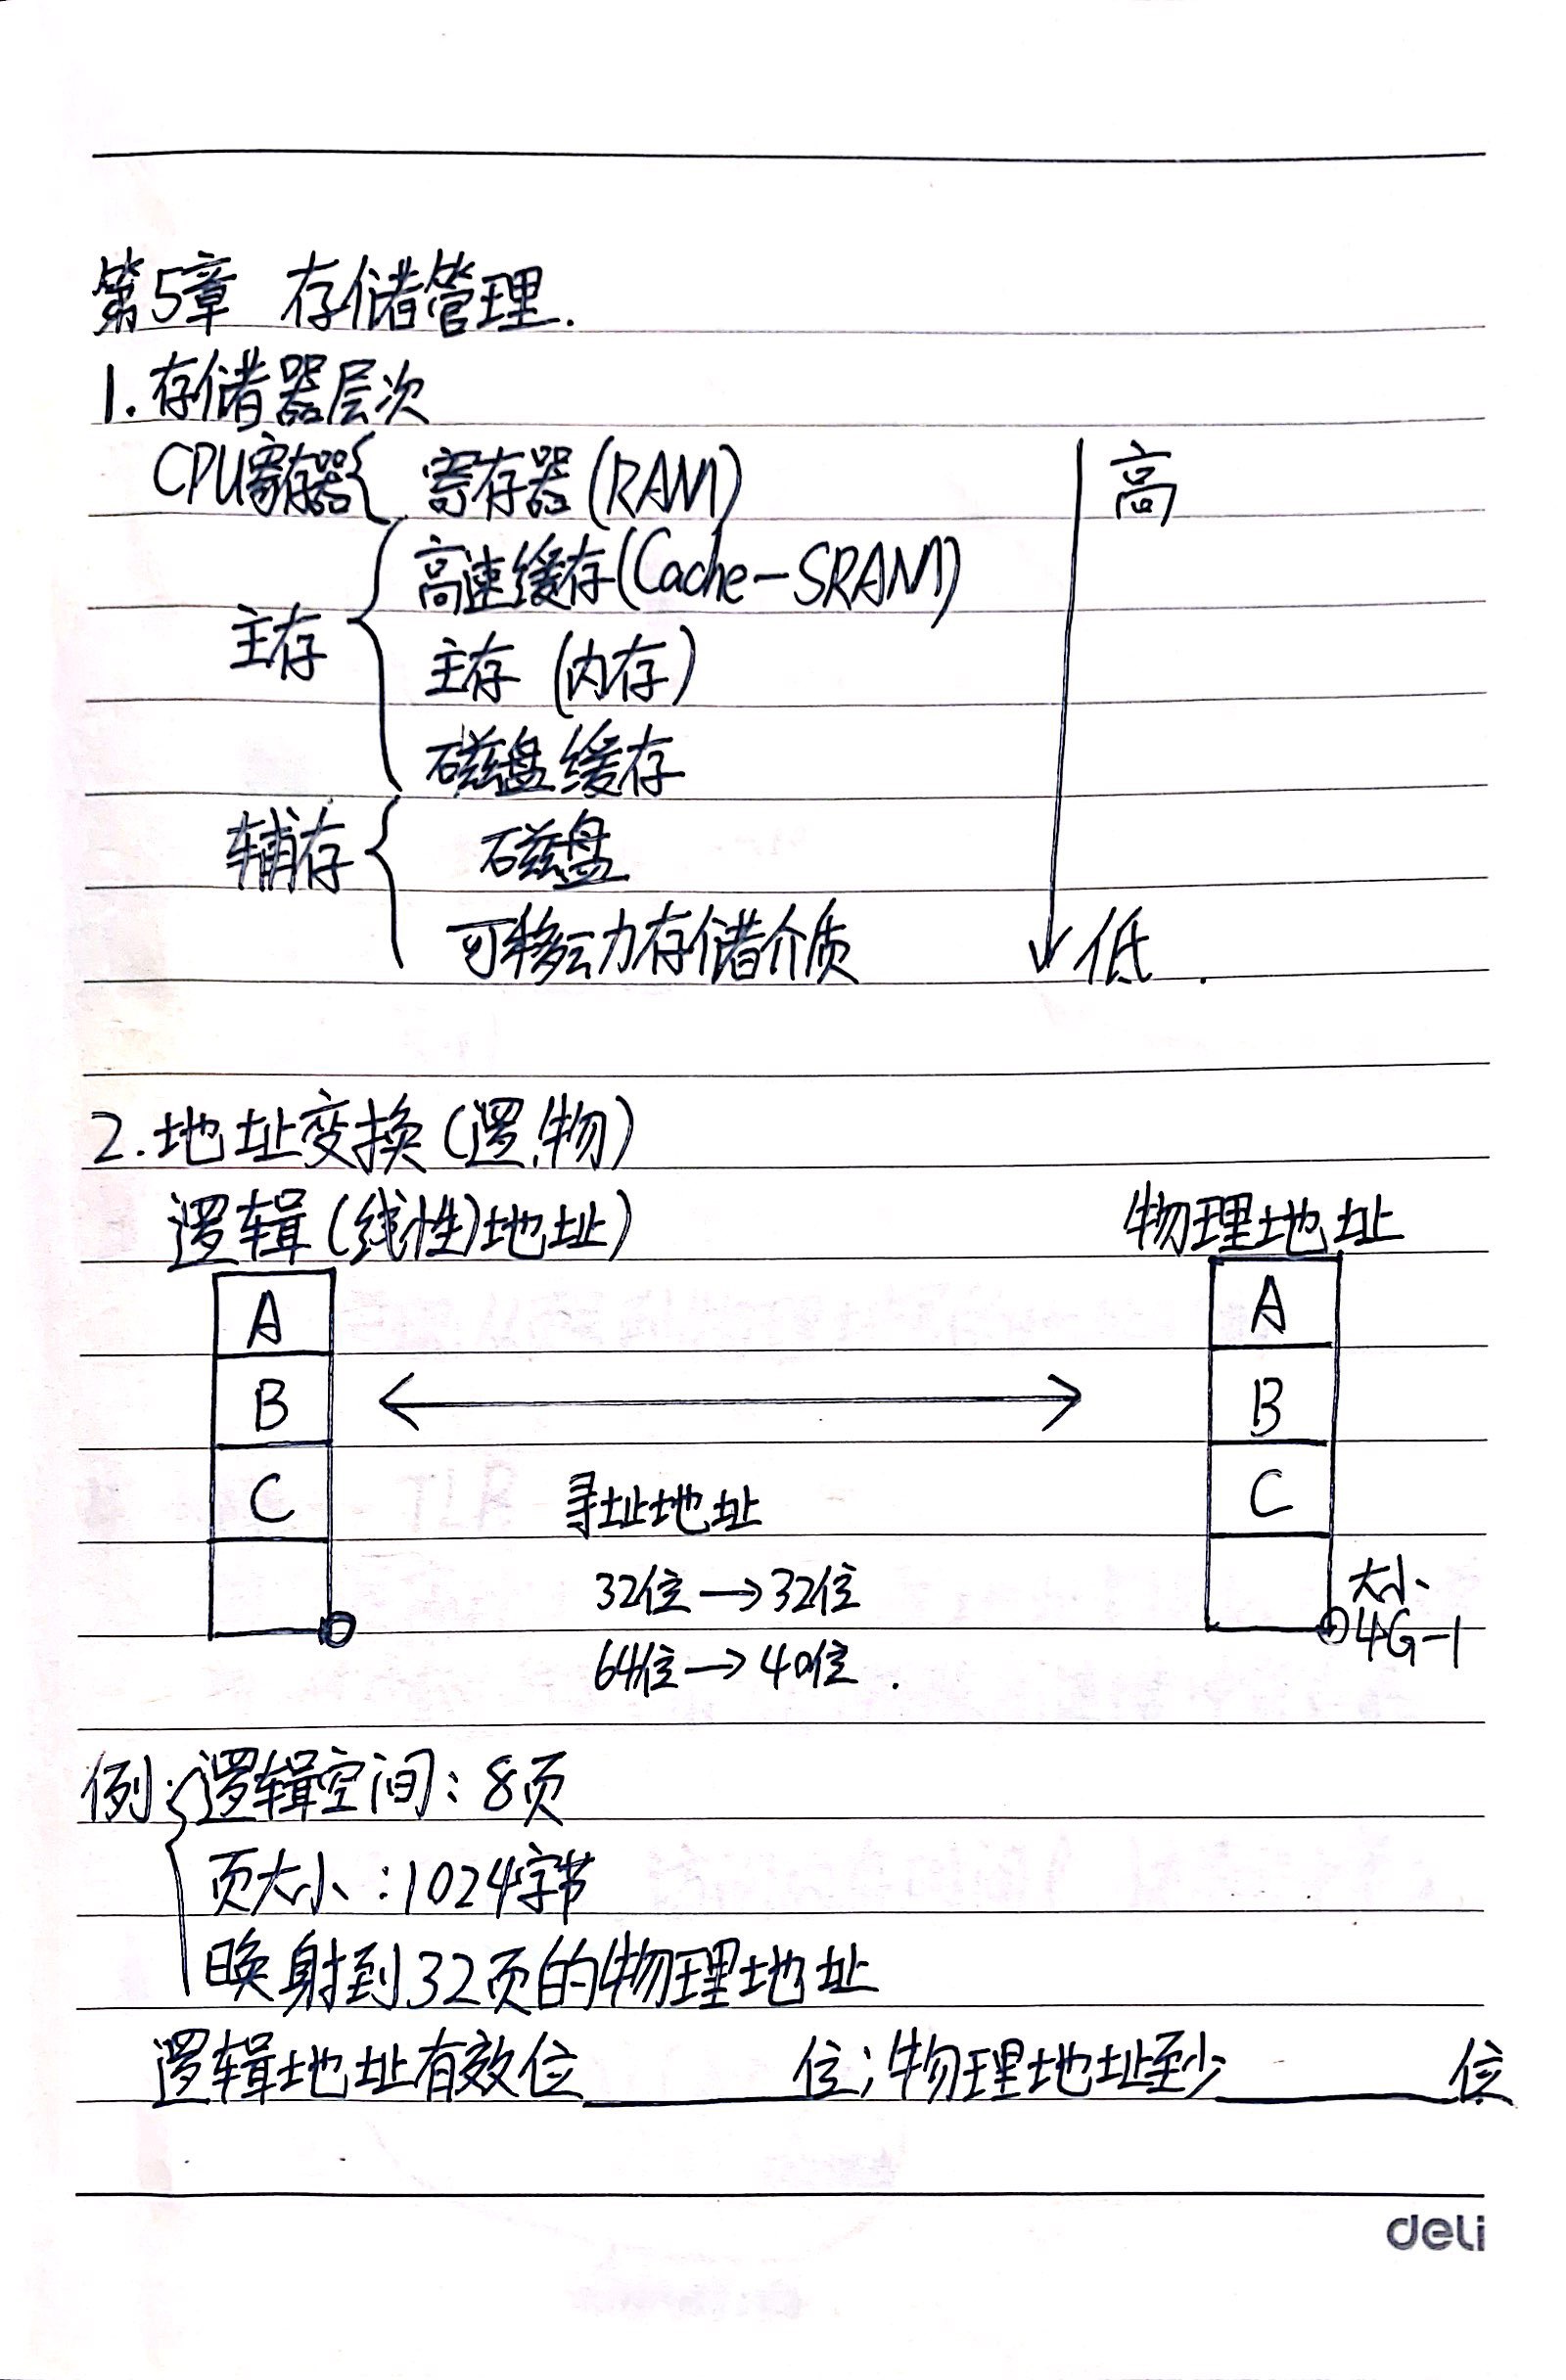 第5章 存储管理.
1.存储器层次
CPU寄存器{ 寄存器(RAM) 高
高速缓存(Cache-SRAM)
主存 { 主存 (内存)
磁盘缓存
辅存 { 磁盘
可移动存储介质 低.
2.地址变换(逻.物)
逻辑(线性)地址) 物理地址
A A
B B
C C
寻址地址
32位→32位 大小
64位→40位. 4G-1
例:{逻辑空间:8页
页大小:1024字节
映射到32页的物理地址
逻辑地址有效位______位;物理地址至少______位
deli